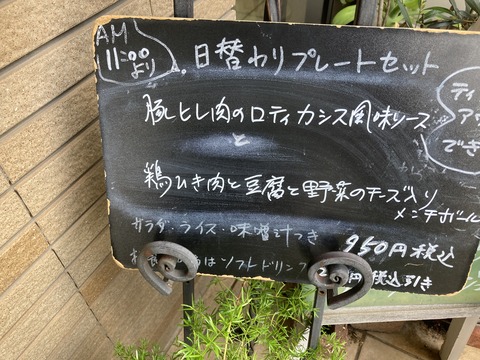 AM
11:00
より
日替わりプレートセット
豚ヒレ肉のロティカシス風味ソース
と
鶏ひき肉と豆腐と野菜のチーズ入り
メンチボール
サラダ・ライス・味噌汁つき
950円税込
はソフトドリンク
円税込引き
ティ
アウ
でき